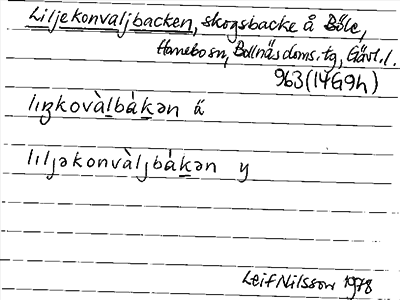 Liljekonvaljbacken, skogsbacke å Böle,
Hanebo sn, Bollnäs doms. tg, Gävl. l.
963 (14G9h)
lıŋkovàlbákən ä
lıljəkonvàljbákən y
Leif Nilsson 1978